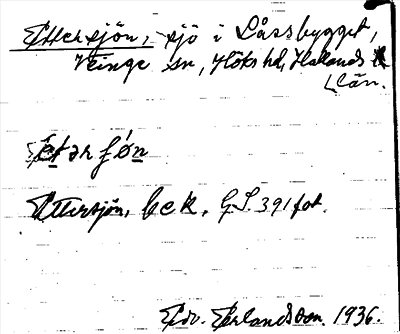 Ettersjön, sjö i Låssbygget,
Veinge sn, Höks hd, Hallands
län.
Ettersjön, bek. G.S. 391 fot.
Edv. Erlandsson. 1936.